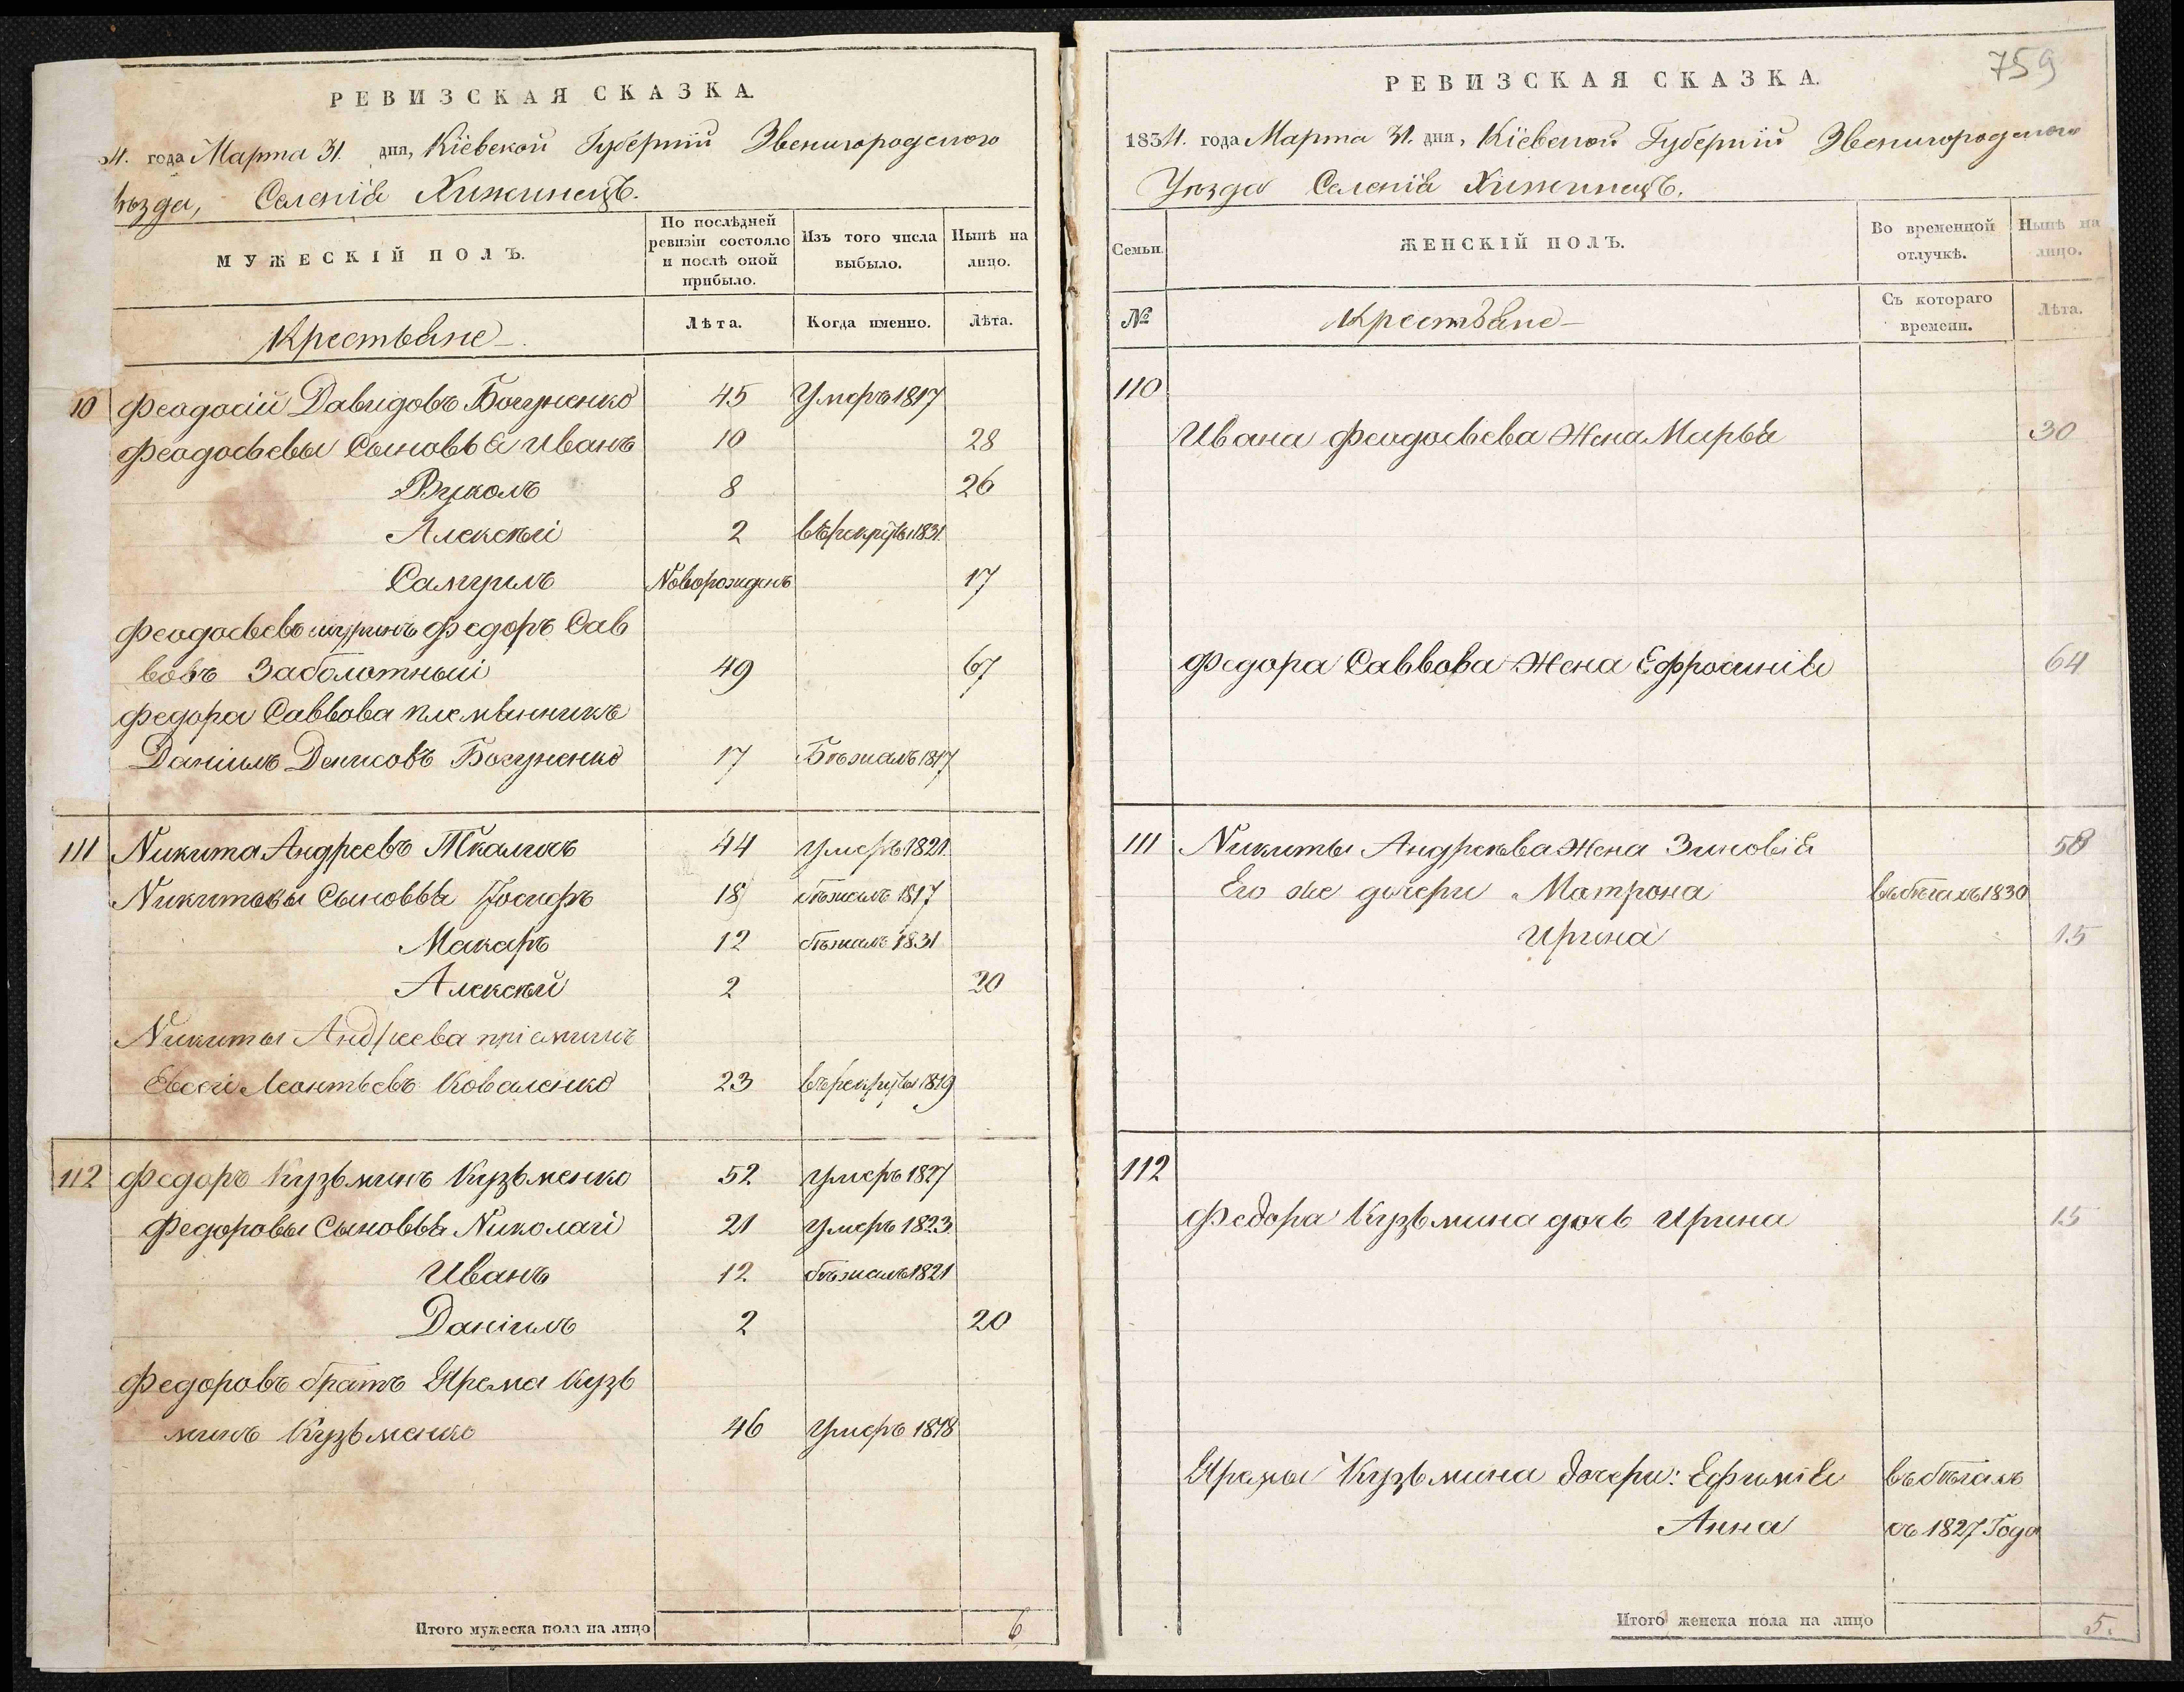 РЕВИЗСКАЯ СКАЗКА.
34. года Марта 31. дня, Кіевской Губерніи Звенигородскаго
ѣзда, Селенія Хижинецъ.
МУЖЕСКІЙ ПОЛЪ.
По послѣдней ревизіи состояло и послѣ оной прибыло.
Изъ того числа выбыло.
Нынѣ на лицо.
Крестьяне
Лѣта.
Когда именно.
Лѣта.
10 Феодосій Давидовъ Богуненко 45 Умеръ 1817
Феодосьевы Сыновья Иванъ 10 28
Вуколъ 8 26
Алексѣй 2 въ рекруты 1831.
Самуилъ Новорожденъ 17
Феодосьевъ шуринъ Федоръ Сав
вовъ Заболотный 49 67
Федора Саввова племянникъ
Даніилъ Денисовъ Богуненко 17 Бѣжалъ 1817
111 Никита Андреевъ Ткаличъ 44 умеръ 1821.
Никитовы Сыновья Іосифъ 18 бѣжалъ 1817
Макаръ 12 бѣжалъ 1831
Алексѣй 2 20
Никиты Андреева пріемышъ
Евсей Леонтьевъ Коваленко 23 въ рекруты 1819
112 Федоръ Кузьминъ Кузьменко 52 умеръ 1827
Федоровы Сыновья Николай 21 умеръ 1823.
Иванъ 12 бѣжалъ 1821
Даніилъ 2 20
Федоровъ братъ Ярема Кузь
минъ Кузьменко 46 Умеръ 1818
Итого мужеска пола на лицо 6
759
РЕВИЗСКАЯ СКАЗКА.
1834. года Марта 31. дня, Кіевской Губерніи Звенигородскаго
Уѣзда Селенія Хижинецъ.
Семьи.
ЖЕНСКІЙ ПОЛЪ.
Во временной отлучкѣ.
Нынѣ на лицо.
№
Крестьяне
Съ котораго времени.
Лѣта.
110
Ивана Феодосьева Жена Марья 30
Федора Саввова Жена Ефросинія 64
111 Никиты Андреева Жена Зиновія 58
Его же дочери Матрона въ бѣгахъ 1830
Ирина 15
112
Федора Кузьмина дочь Ирина 15
Яремы Кузьмина дочери: Ефимія въ бѣгахъ
Анна съ 1827 Года
Итого женска пола на лицо 5.